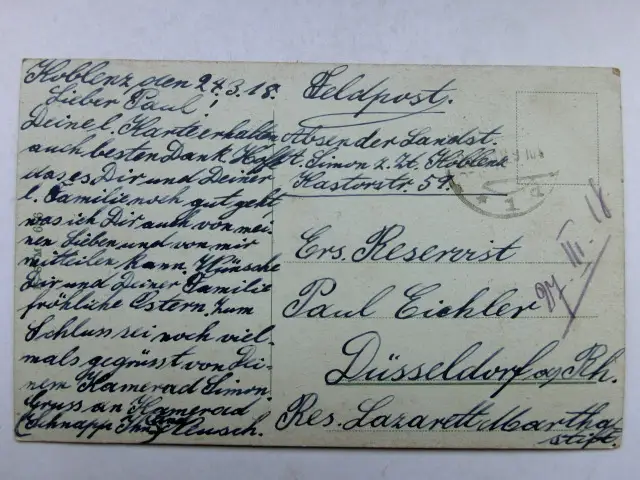 Koblenz den 24.3.18.
Lieber Paul!
Deine l. Karte erhalten
auch besten Dank. Hoffe
das es Dir und Deiner
l. Familie noch gut geht,
was ich Dir auch von mei-
nen Lieben und von mir
mitteilen kann. Wünsche
Dir und Deiner Familie
fröhliche Ostern. Zum
Schluss sei noch viel-
mals gegrüsst von Dei-
nem Kamerad Simon.
Gruss an Kamerad
(Schnapp Reusch.
Feldpost.
Absender Landst.
Simon z. Zt. Koblenz
Kastorstr. 51.
Ers. Reservist
Paul Eichler
Düsseldorf a/Rh.
Res. Lazarett Martha
stift.
27 III. 18
* 1 2